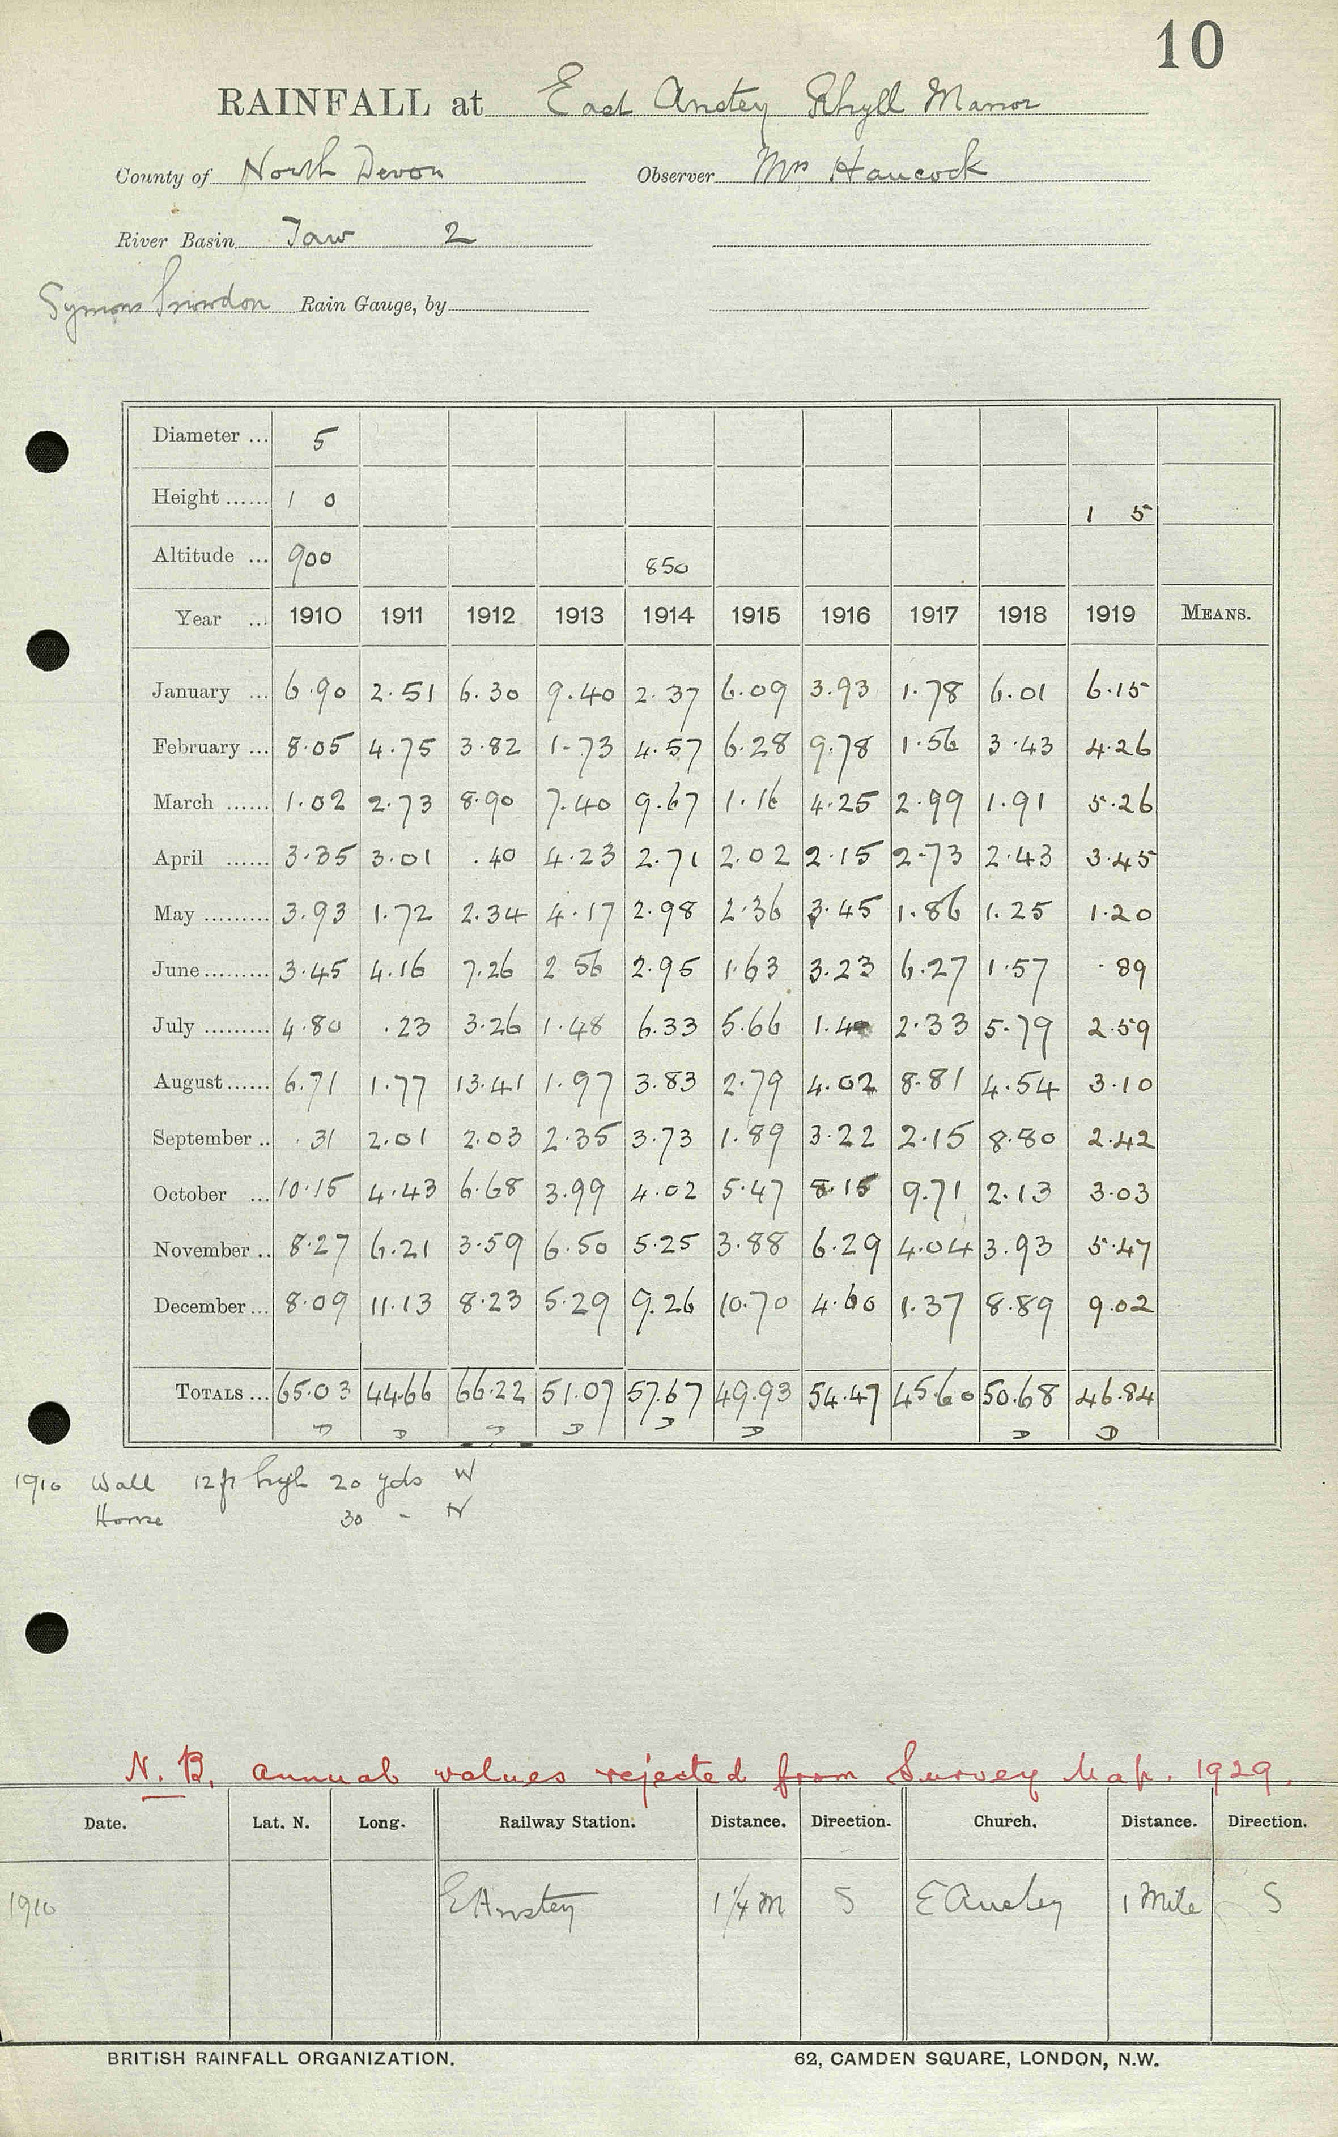 10
RAINFALL at East Anstey Rhyll Manor
County of North Devon Observer Mrs Hancock
River Basin Taw 2
Symons Snowdon Rain Gauge, by
Diameter ... 5
Height ...... 1 0 1 5
Altitude ... 900 850
Year ... 1910 1911 1912 1913 1914 1915 1916 1917 1918 1919 MEANS.
January ... 6.90 2.51 6.30 9.40 2.37 6.09 3.93 1.78 6.01 6.15
February ... 8.05 4.75 3.82 1.73 4.57 6.28 9.78 1.56 3.43 4.26
March ...... 1.02 2.73 8.90 7.40 9.67 1.16 4.25 2.99 1.91 5.26
April ...... 3.35 3.01 .40 4.23 2.71 2.02 2.15 2.73 2.43 3.45
May ......... 3.93 1.72 2.34 4.17 2.98 2.36 3.45 1.86 1.25 1.20
June ......... 3.45 4.16 7.26 2 56 2.95 1.63 3.23 6.27 1.57 .89
July ......... 4.80 .23 3.26 1.48 6.33 5.66 2.33 5.79 2.59
August ...... 6.71 1.77 13.41 1.97 3.83 2.79 4.02 8.81 4.54 3.10
September .. .31 2.01 2.03 2.35 3.73 1.89 3.22 2.15 8.80 2.42
October ... 10.15 4.43 6.68 3.99 4.02 5.47 8.15 9.71 2.13 3.03
November .. 8.27 6.21 3.59 6.50 5.25 3.88 6.29 4.04 3.93 5.47
December ... 8.09 11.13 8.23 5.29 9.26 10.70 4.60 1.37 8.89 9.02
TOTALS ... 65.03 44.66 66.22 51.07 57.67 49.93 54.47 45.60 50.68 46.84
D D D D D D D D
1910 Wall 12ft high 20 yds W
House 30 - N
N.B. annual values rejected from Survey Map. 1929.
Date. Lat. N. Long. Railway Station. Distance. Direction. Church. Distance. Direction.
1910 E Anstey 1 1/4 M S E Anstey 1 Mile S
BRITISH RAINFALL ORGANIZATION. 62, CAMDEN SQUARE, LONDON, N.W.